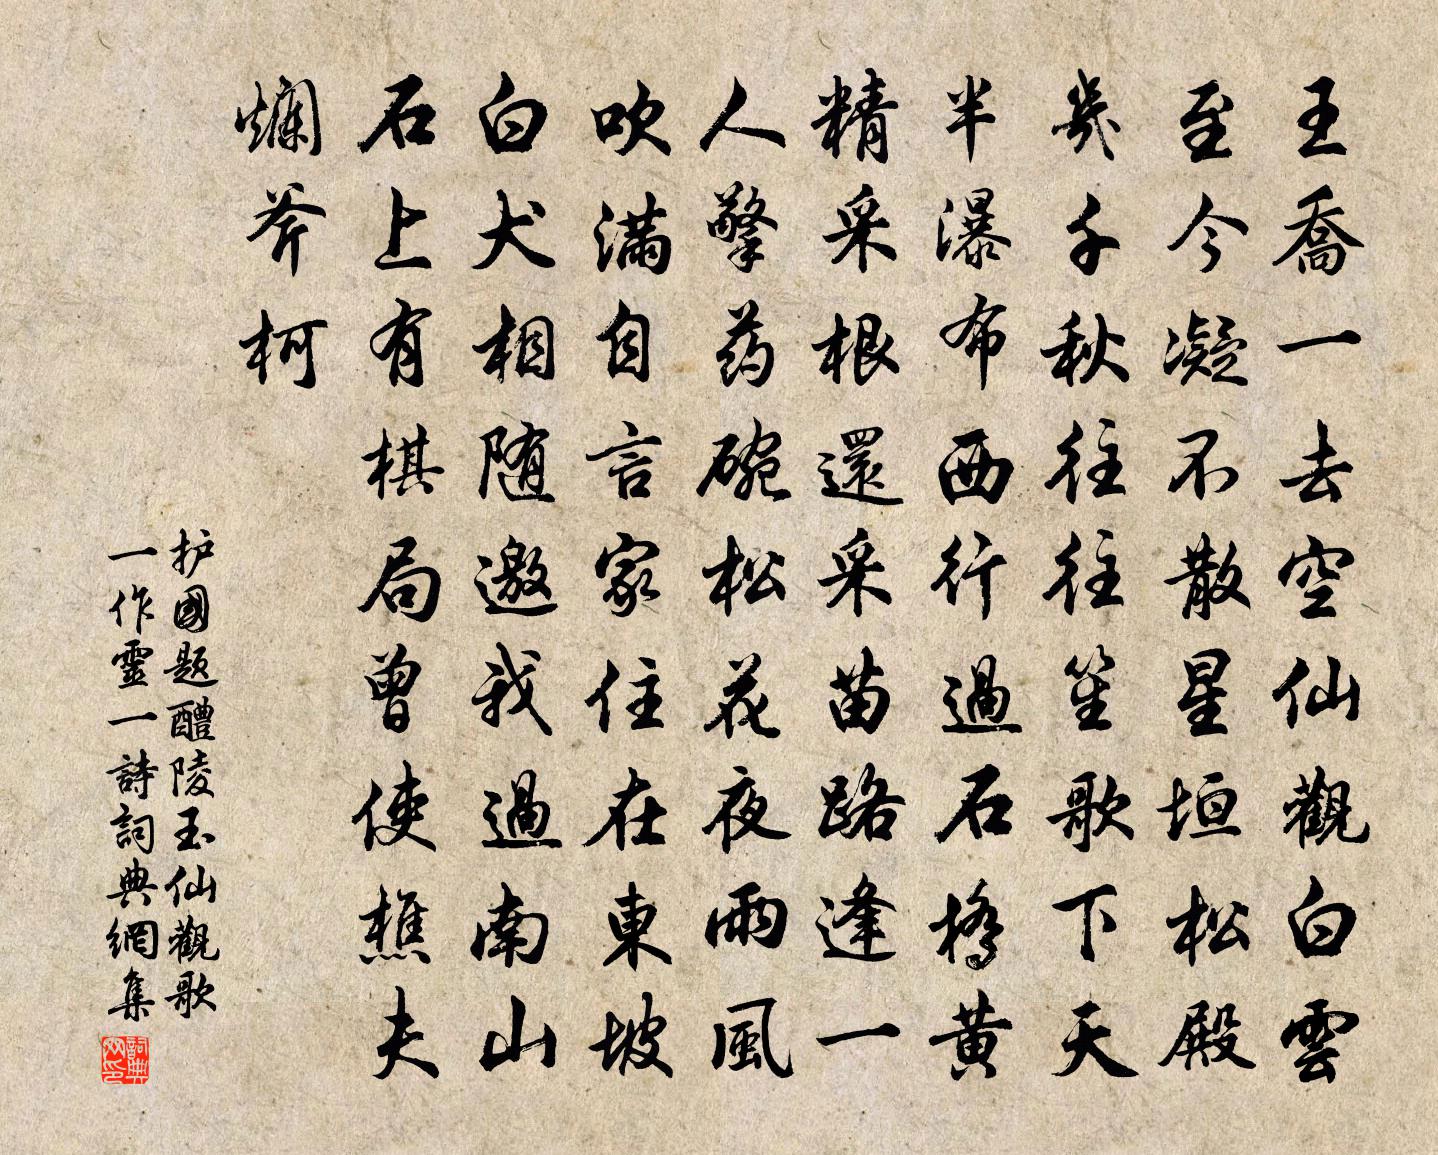 王喬一去空仙觀白雲
至今凝不散星垣松殿
幾千秋往往笙歌下天
半瀑布西行過石橋黄
精采根還采苗路逢一
人擎药碗松花夜雨風
吹满自言家住在東坡
白犬相随邀我過南山
石上有棋局曾使樵夫
爛斧柯
护國题醴陵玉仙觀歌
一作靈一詩詞典網集
詞典
网印